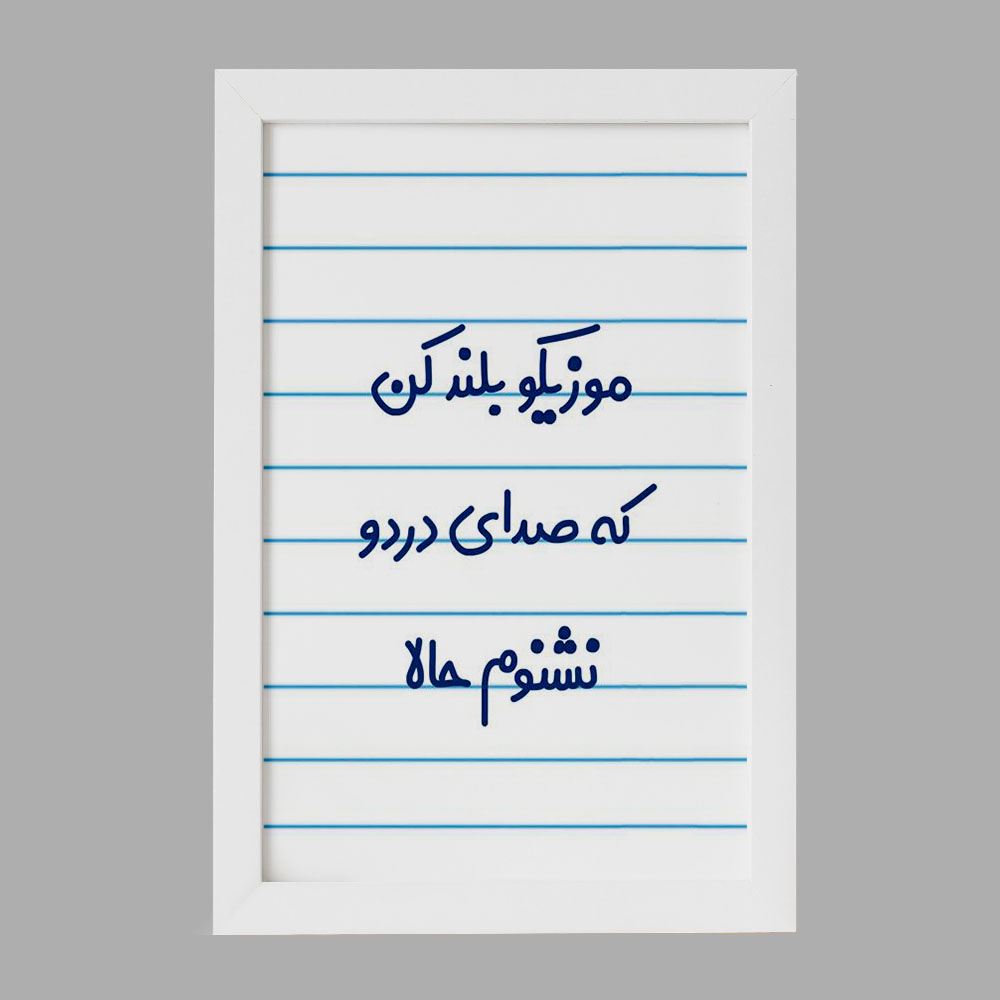 موزیکو بلند کن
که صدای دردو
نشنوم حالا